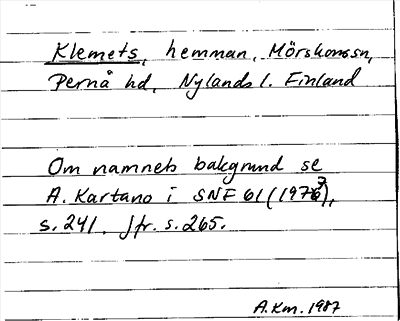 Klemets, hemman, Mörskomssn,
Pernå hd, Nylands l. Finland
Om namnets bakgrund se
A. Kartano i SNF 61 (1973),
s. 241. Jfr. s. 265.
A.Km. 1987